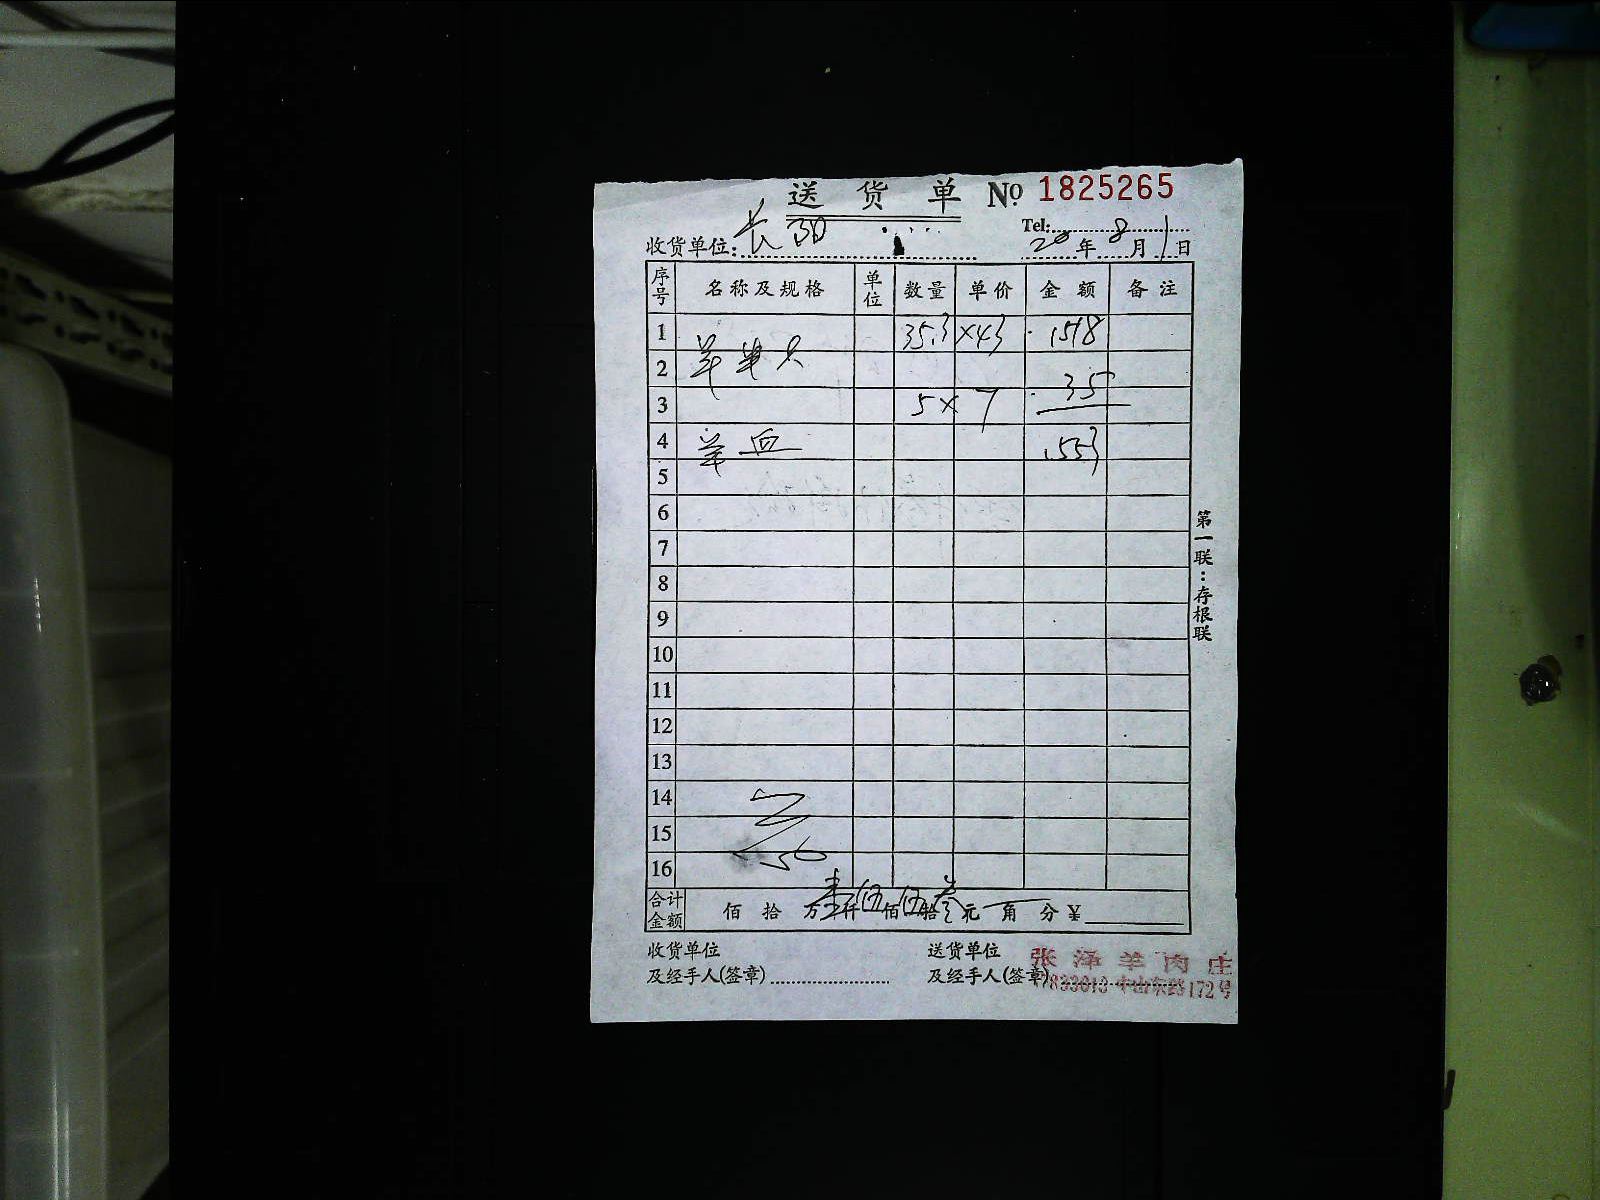 送 货 单 № 1825265
Tel:
收货单位: 长30 20年8月1日
序号 名称及规格 单位 数量 单价 金额 备注
1 35.3 ×43 1518
2 羊 35
3 5× 7
4 羊血 1553
5
6
7
8
9
10
11
12
13
14
15
16
合计金额 佰 拾 万壹仟伍佰伍拾叁元 角 分 ¥
第一联:存根联
收货单位 送货单位
及经手人(签章) 及经手人(签章)
张泽羊肉庄
中山东路172号